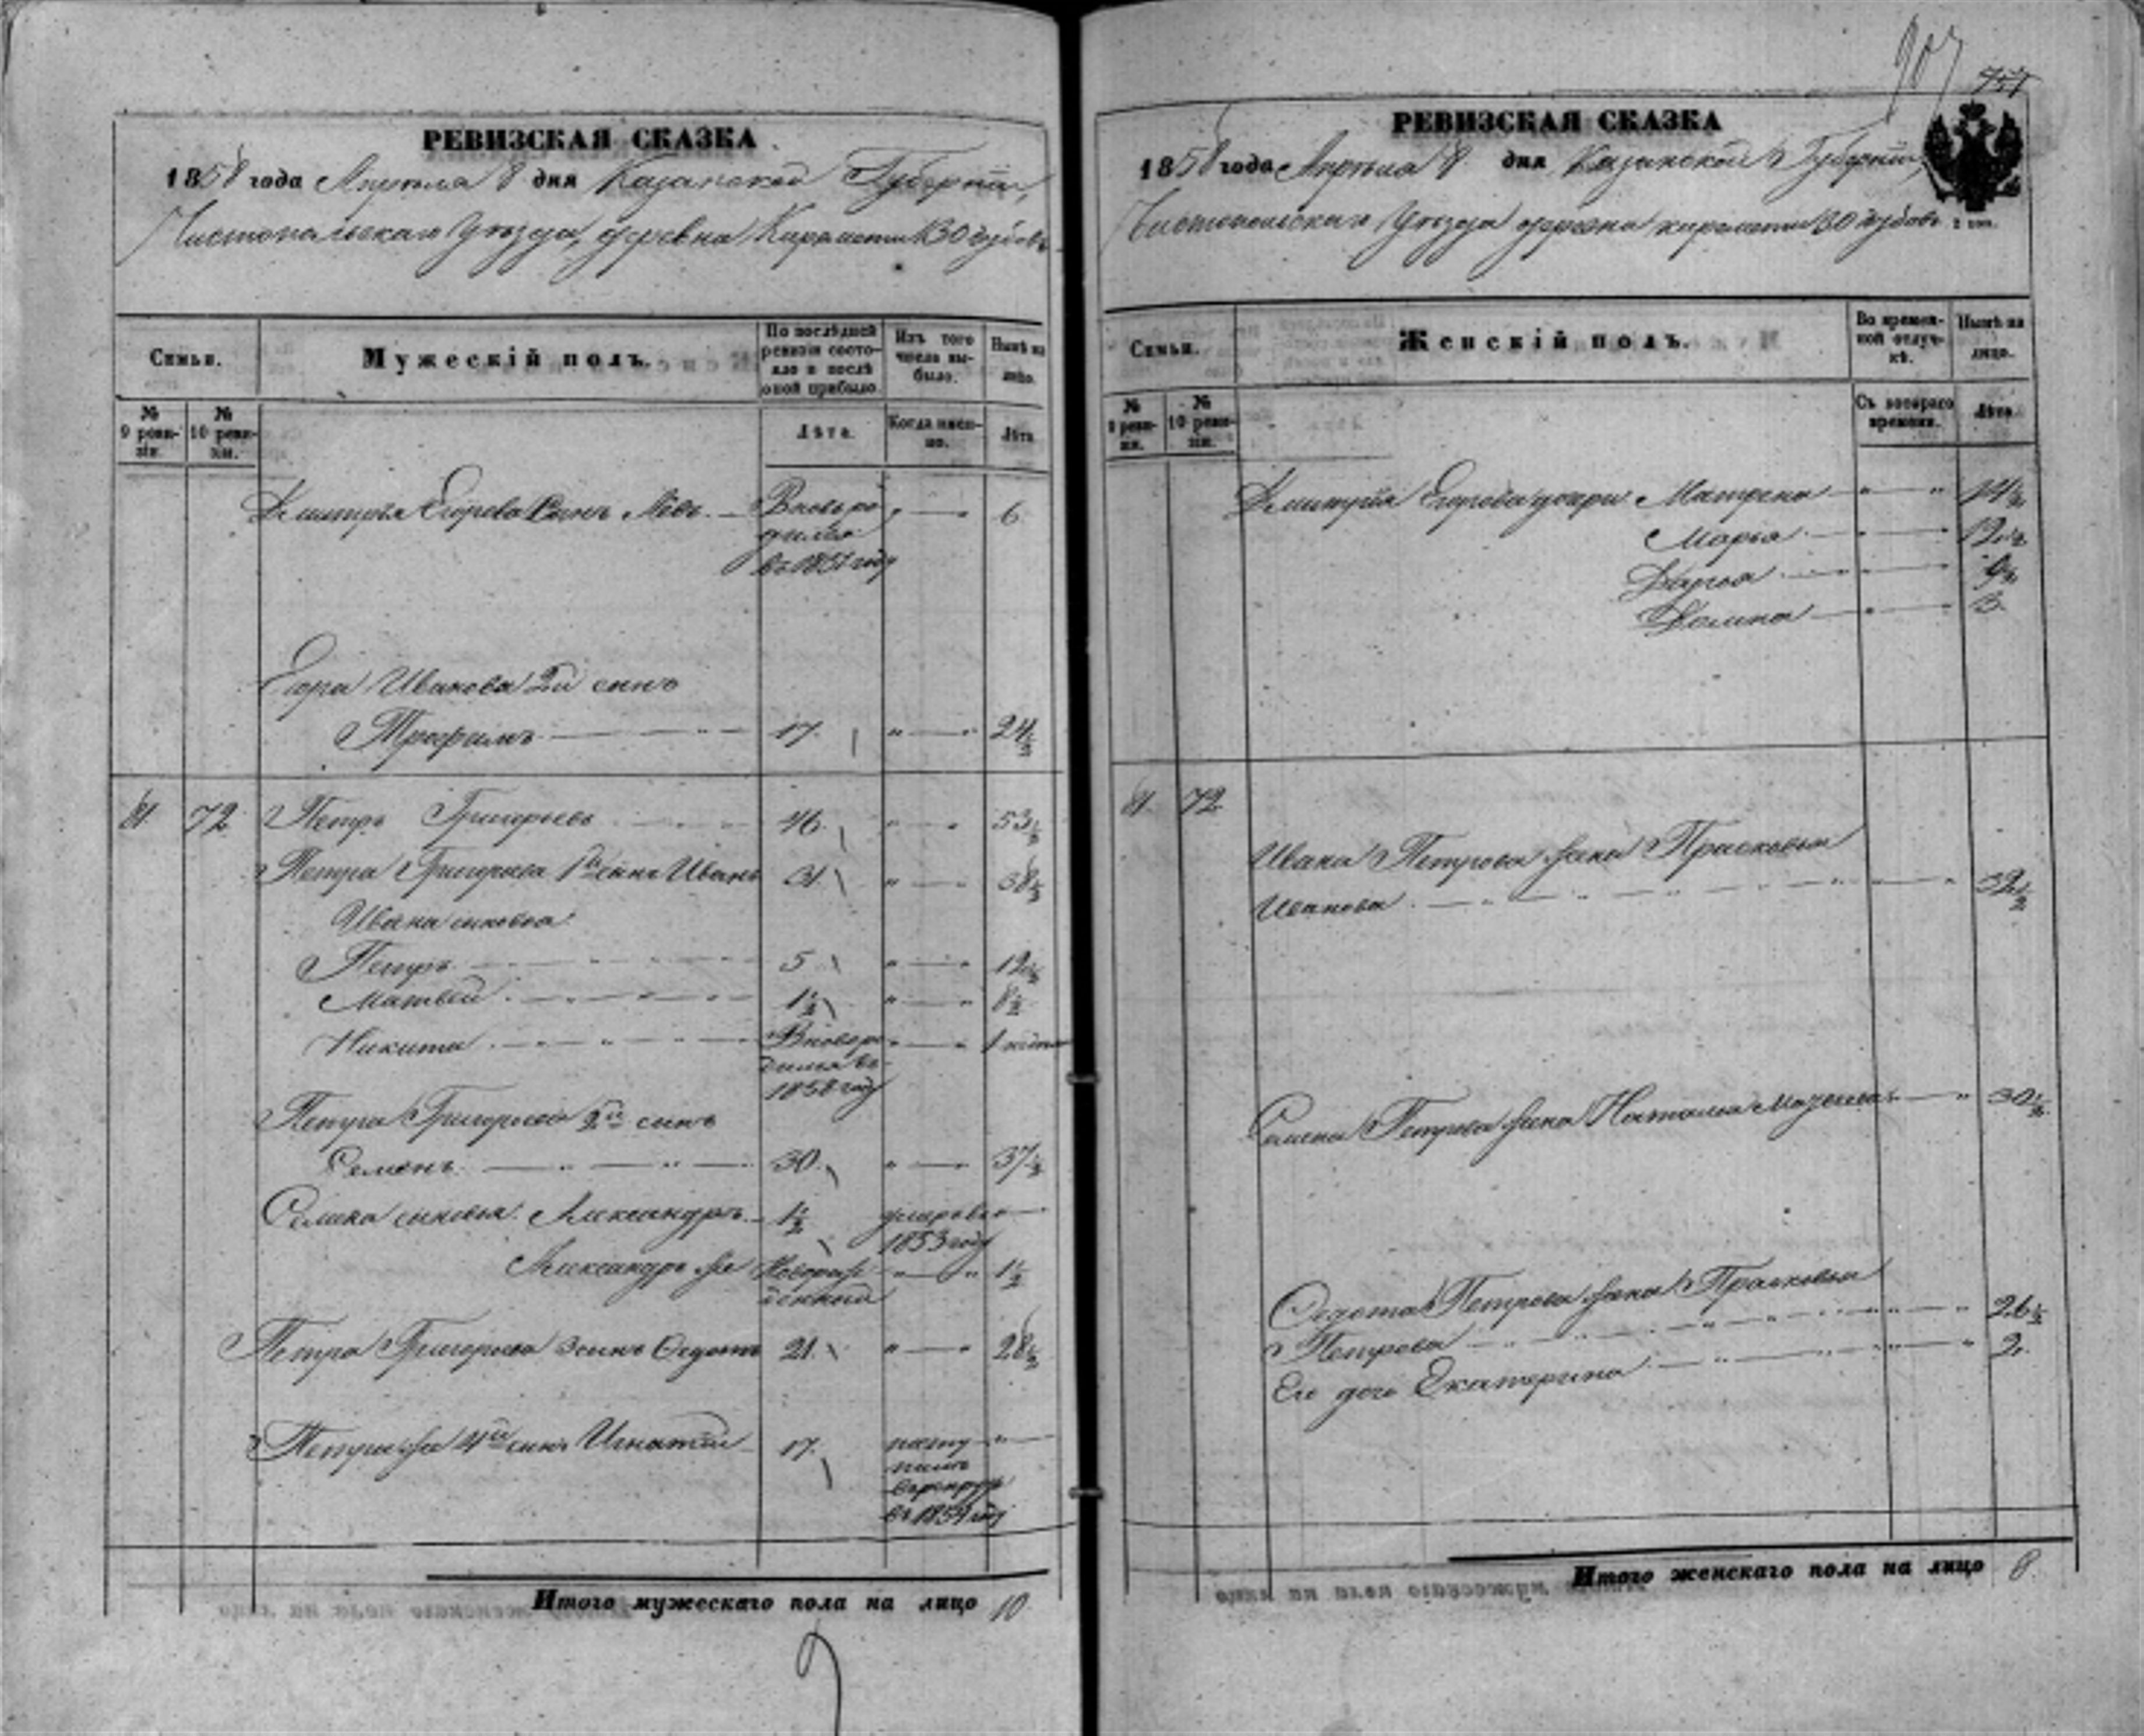 РЕВИЗСКАЯ СКАЗКА
1858 года Апреля 8 дня Казанской Губернiи,
Чистопольскаго Уѣзда, деревна Кираметги 30 дубовъ
Семьи.
Мужескiй полъ.
По послѣдней ревизiи состояло и послѣ оной прибыло.
Изъ того числа выбыло.
Нынѣ на лицо.
№ 9 ревизiи.
№ 10 ревизiи.
Лѣта.
Когда именно.
Лѣта
Дмитрiя Егорова сынъ Вновь ро 6
дился
въ 1851 году
Егора Иванова 2й сынъ
Трофимъ 17. 24½
61 72 Петръ Григорьевъ 46. 53½
Петра Григорьева 1й сынъ Иванъ 31. 38½
Ивана сыновья:
Петръ 5 12½
Матвей 1½ 8½
Никита Вновь ро 1
дился въ
1858 году
Петра Григорьева 2й сынъ
Семенъ. 30. 37½
Семена сыновья: Александръ 1½ умеръ въ
1853 году
Александръ же Новорож 1½
денный
Петра Григорьева 3 сынъ Федотъ 21. 28½
Петра же 4й сынъ Игнатiй 17. посту
пилъ
въ рекруты
въ 1854 году
Итого мужескаго пола на лицо 10
907
РЕВИЗСКАЯ СКАЗКА
1858 года Апреля 8 дня Казанской Губернiи,
Чистопольскаго Уѣзда деревна кираметги 30 дубовъ
2 коп.
Семьи.
Женскiй полъ.
Во временной отлучкѣ.
Нынѣ на лицо.
№ 9 ревизiи.
№ 10 ревизiи.
Съ котораго времени.
Лѣта.
Дмитрiя Егорова дочери Матрена 14½
Марья 12½
Дарья 9½
Домна 3.
61. 72
Ивана Петрова жена Прасковья
Иванова 32½
Семена Петрова жена Наталья 30½
Федота Петрова жена Прасковья
Петрова 26½
Ею дочь Екатерина 2.
Итого женскаго пола на лицо 8.